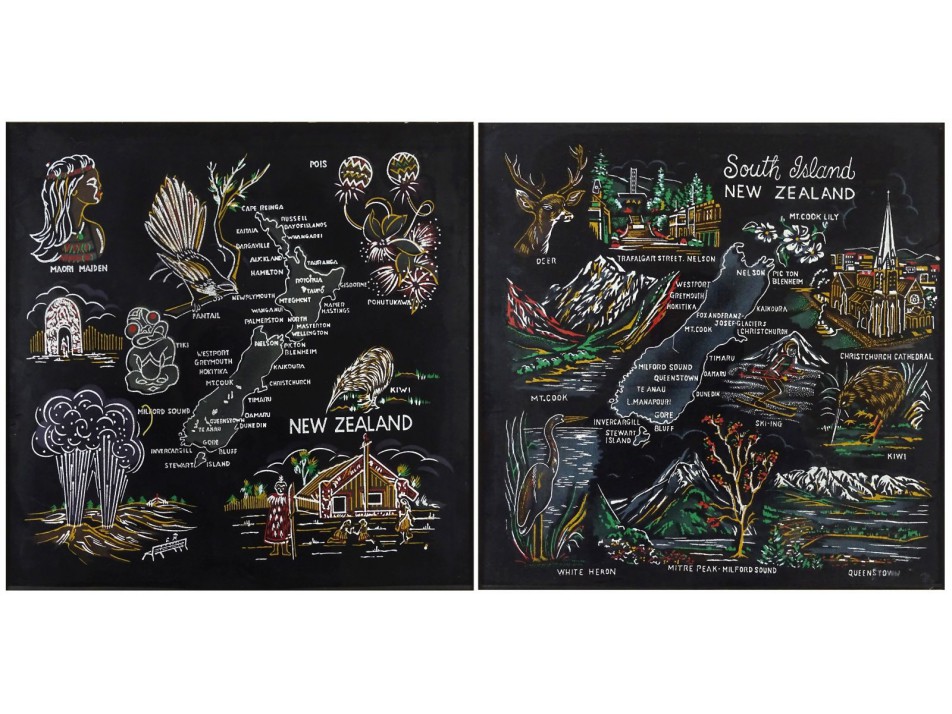 MAORI MAIDEN
FANTAIL
POIS
POHUTUKAWA
TIKI
KIWI
NEW ZEALAND
CAPE REINGA
RUSSELL
BAY OF ISLANDS
KAITAIA
WHANGAREI
DARGAVILLE
AUCKLAND
TAURANGA
HAMILTON
ROTORUA
TAUPO
GISBORNE
NEWPLYMOUTH
MT EGMONT
NAPIER
HASTINGS
WANGANUI
PALMERSTON NORTH
MASTERTON
WELLINGTON
NELSON
PICTON
BLENHEIM
WESTPORT
GREYMOUTH
HOKITIKA
KAIKOURA
MT.COOK
CHRISTCHURCH
TIMARU
MILFORD SOUND
OAMARU
QUEENSTOWN
DUNEDIN
TE ANAU
GORE
INVERCARGILL
BLUFF
STEWART ISLAND
South Island
NEW ZEALAND
DEER
TRAFALGAR STREET. NELSON
MT.COOK LILY
NELSON
PICTON
BLENHEIM
WESTPORT
GREYMOUTH
HOKITIKA
KAIKOURA
FOX AND FRANZ
JOSEF GLACIERS
MT.COOK
CHRISTCHURCH
CHRISTCHURCH CATHEDRAL
TIMARU
MILFORD SOUND
QUEENSTOWN
OAMARU
TE ANAU
DUNEDIN
L.MANAPOURI
GORE
INVERCARGILL
BLUFF
STEWART
ISLAND
MT.COOK
SKI-ING
KIWI
WHITE HERON
MITRE PEAK-MILFORD SOUND
QUEENSTOWN